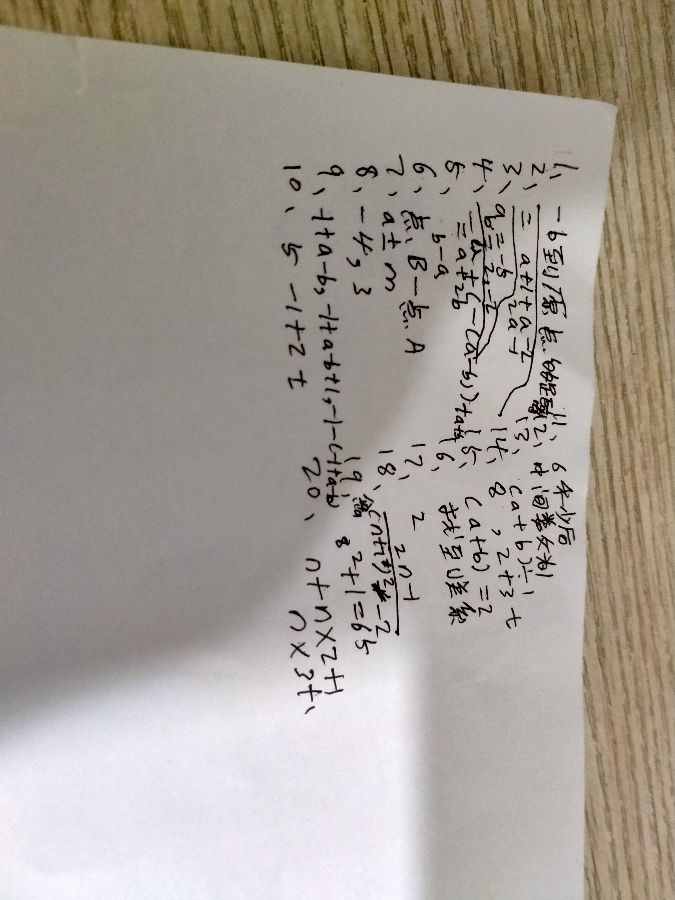 1、-6到原点的距离
2、= a+1+a-2
2a-1
3、ab=-2,-2
4、-a+(-(a-b))+a+b
=a+2b
5、b-a
6、点B-点A
7、a±m
8、-4,3
9、-1+a-b,-1+a+b+1,-1-(-1+a-b)
10、5-1+2t
11、6秒后
12、中间数为
13、(a+b)÷
14、8,2+3t
15、(a+b)=2
16、找到联系
17、2
18、2n-1
(n+1)²-2
19、8²+1=65
20、n+n×2+1
n×3+1